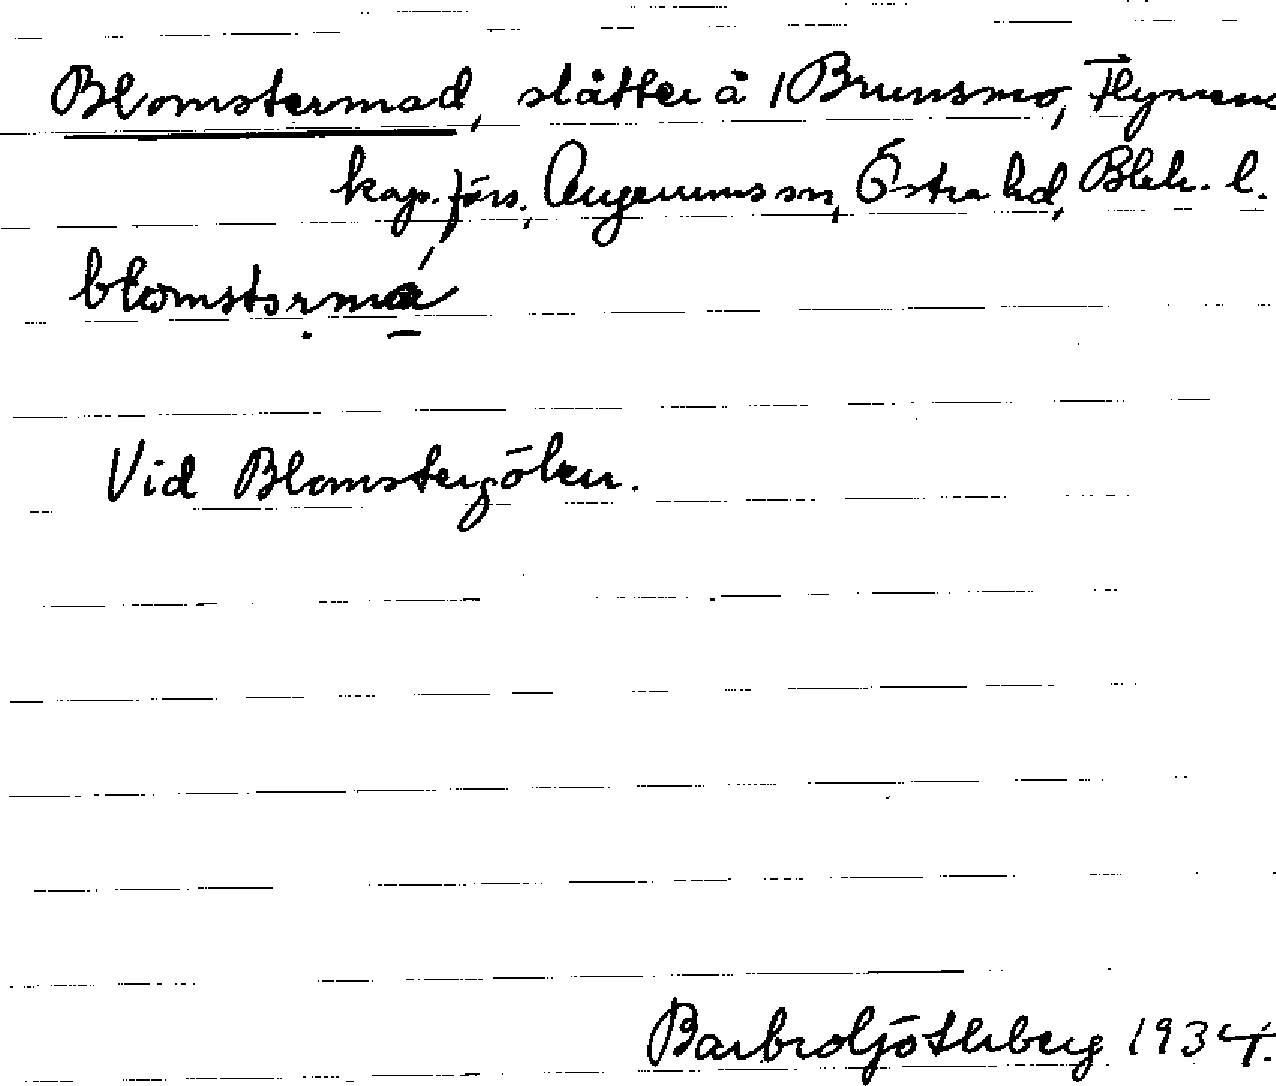 Blomstermad, slåtter å 1 Brunsmo, Flymens
kap. förs., Augerums sn, Östra hd, Blek. l.
blomstərmá
Vid Blomstergölen.
Barbro Götlberg 1934.